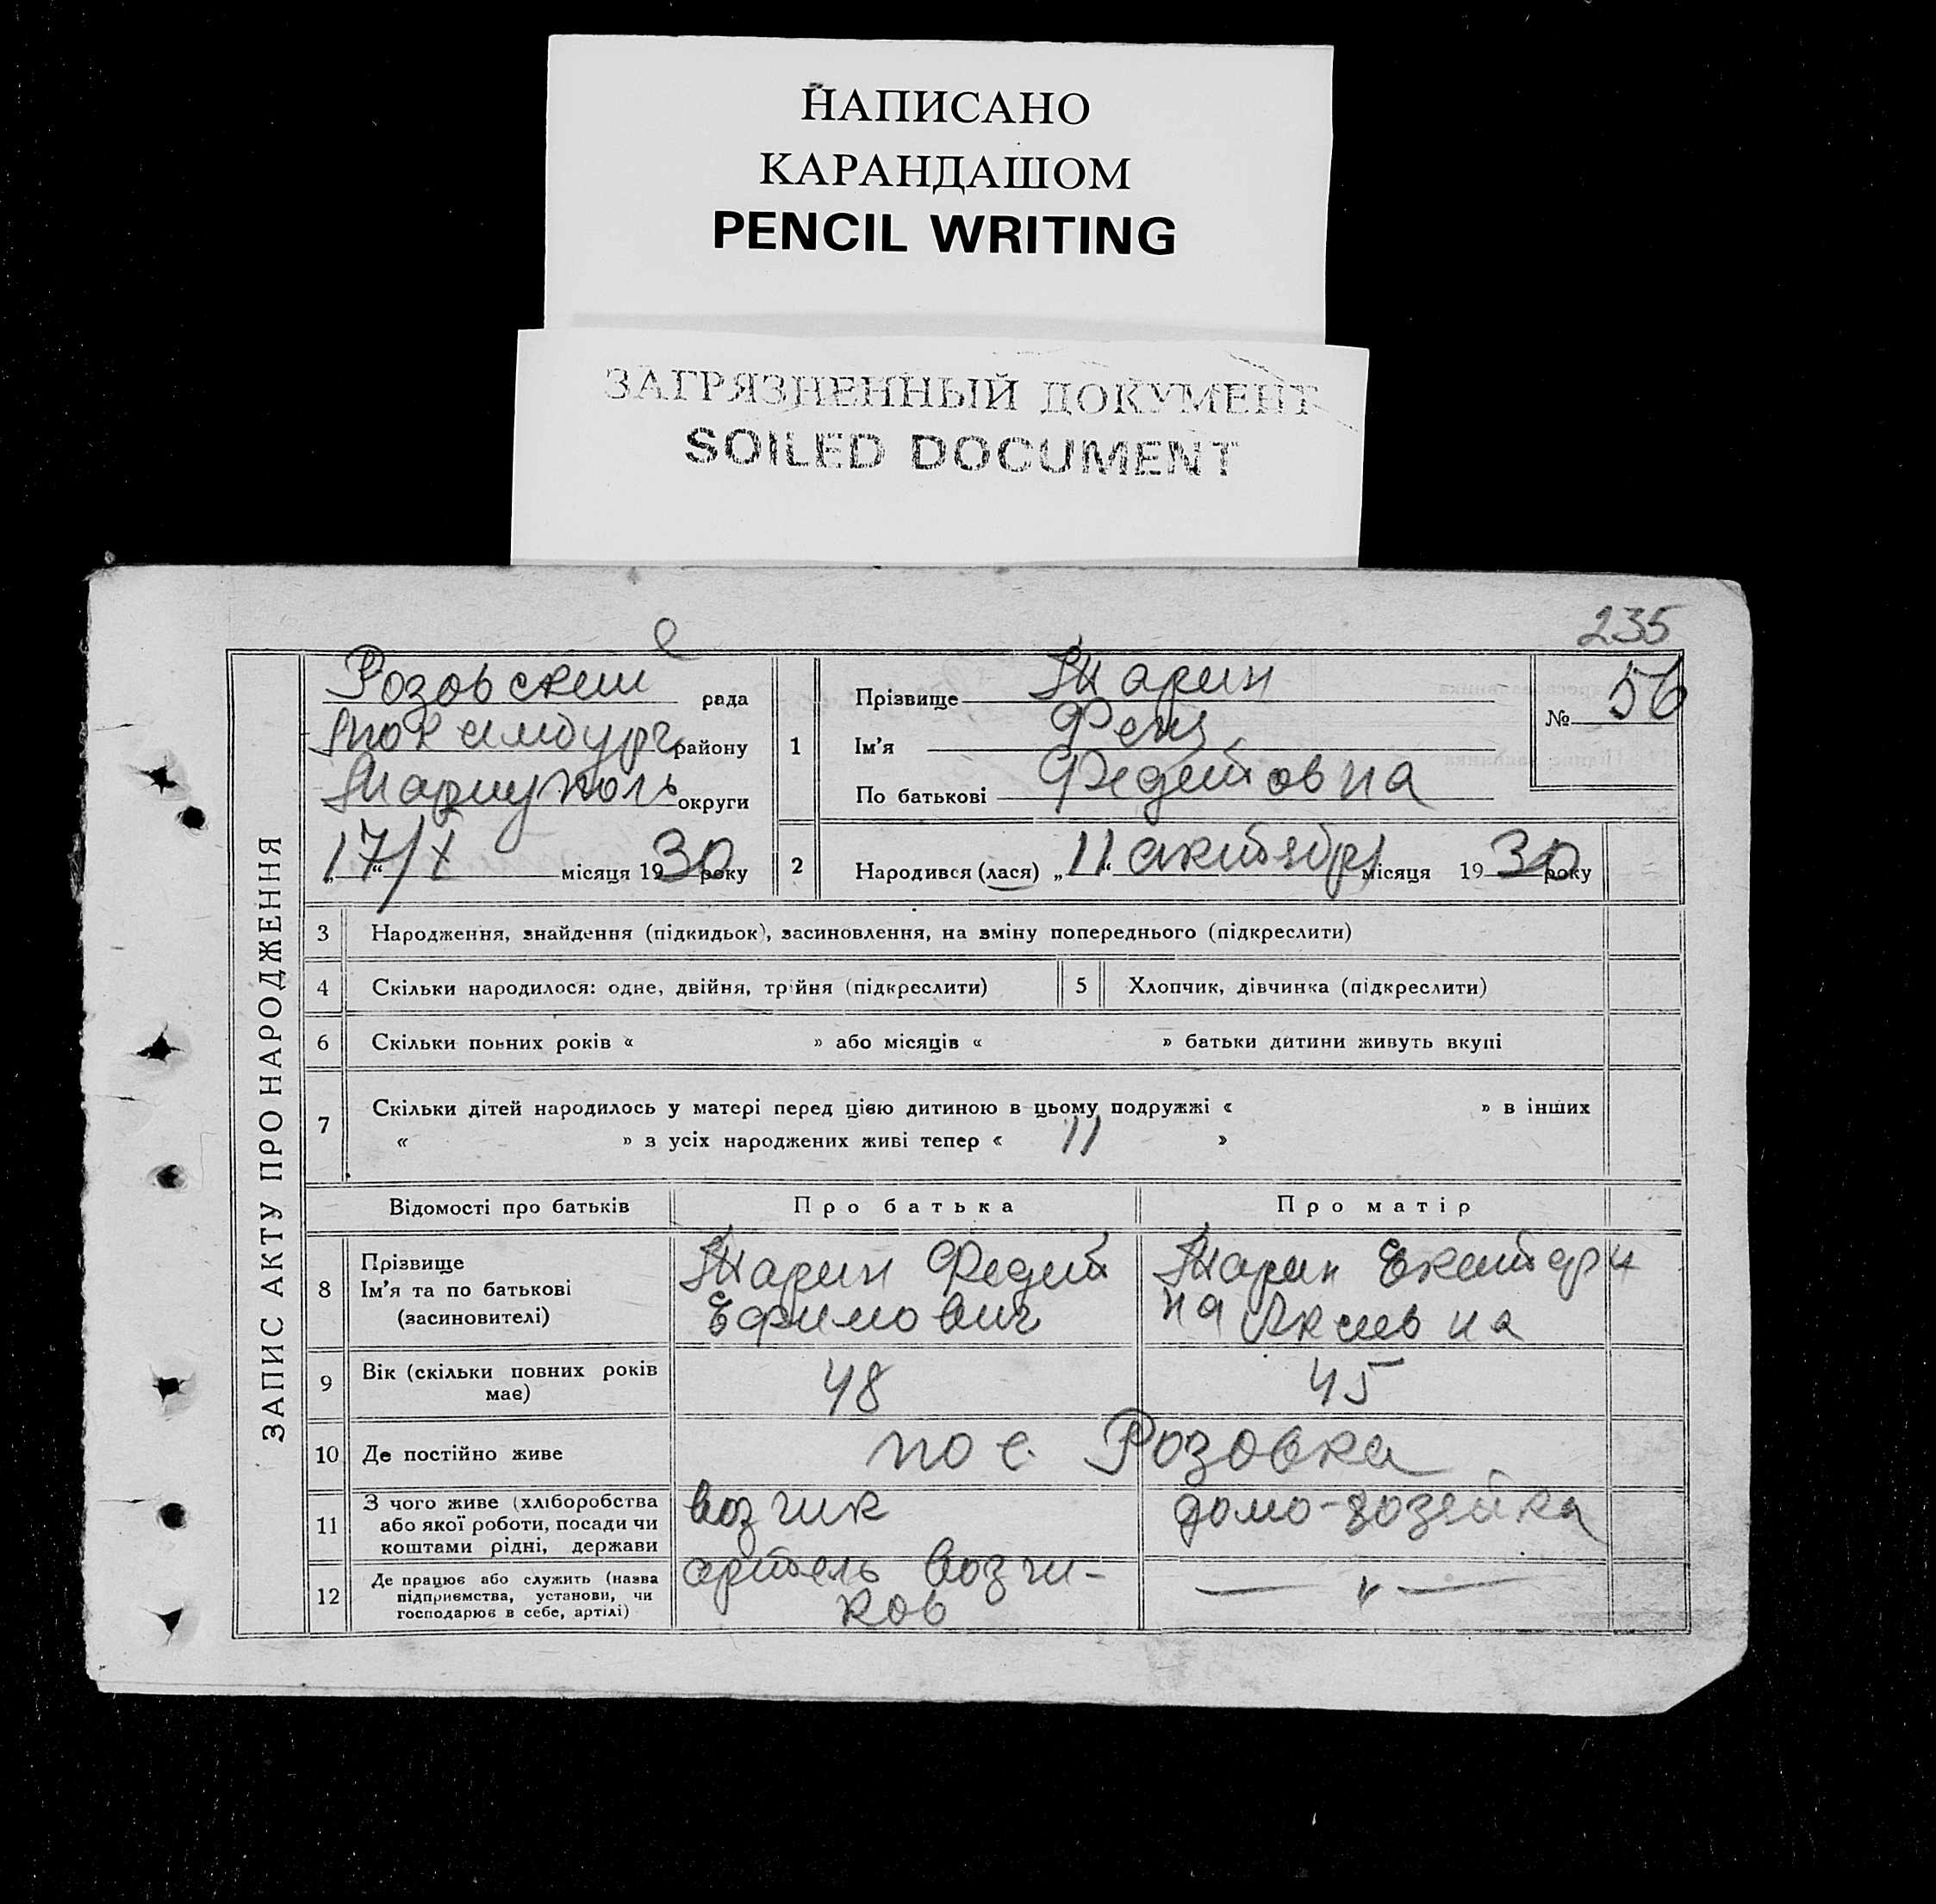 НАПИСАНО
КАРАНДАШОМ
PENCIL WRITING
ЗАГРЯЗНЕННЫЙ ДОКУМЕНТ
SOILED DOCUMENT
235
ЗАПИС АКТУ ПРО НАРОДЖЕННЯ
Розовский рада
району
Мариуполь округи
17/X місяця 1930 року
1
Прізвище
Ім'я
По батькові
№ 56
2
Народився (лася) „11“ октября місяця 1930 року
3 Народження, знайдення (підкидьок), засиновлення, на зміну попереднього (підкреслити)
4 Скільки народилося: одне, двійня, трійня (підкреслити)
5 Хлопчик, дівчинка (підкреслити)
6 Скільки повних років « » або місяців « » батьки дитини живуть вкупі
7 Скільки дітей народилось у матері перед цією дитиною в цьому подружжі « » в інших
« » з усіх народжених живі тепер « 11 »
Відомості про батьків Про батька Про матір
8 Прізвище
Ім'я та по батькові
(засиновителі)
Ефимович
9 Вік (скільки повних років
має) 48 45
10 Де постійно живе пос. Розовка
11 З чого живе (хліборобства
або якої роботи, посади чи
коштами рідні, держави
возчик домо-хозяйка
12 Де працює або служить (назва
підприємства, установи, чи
господарює в себе, артілі)
артель возчи-
ков
— " —